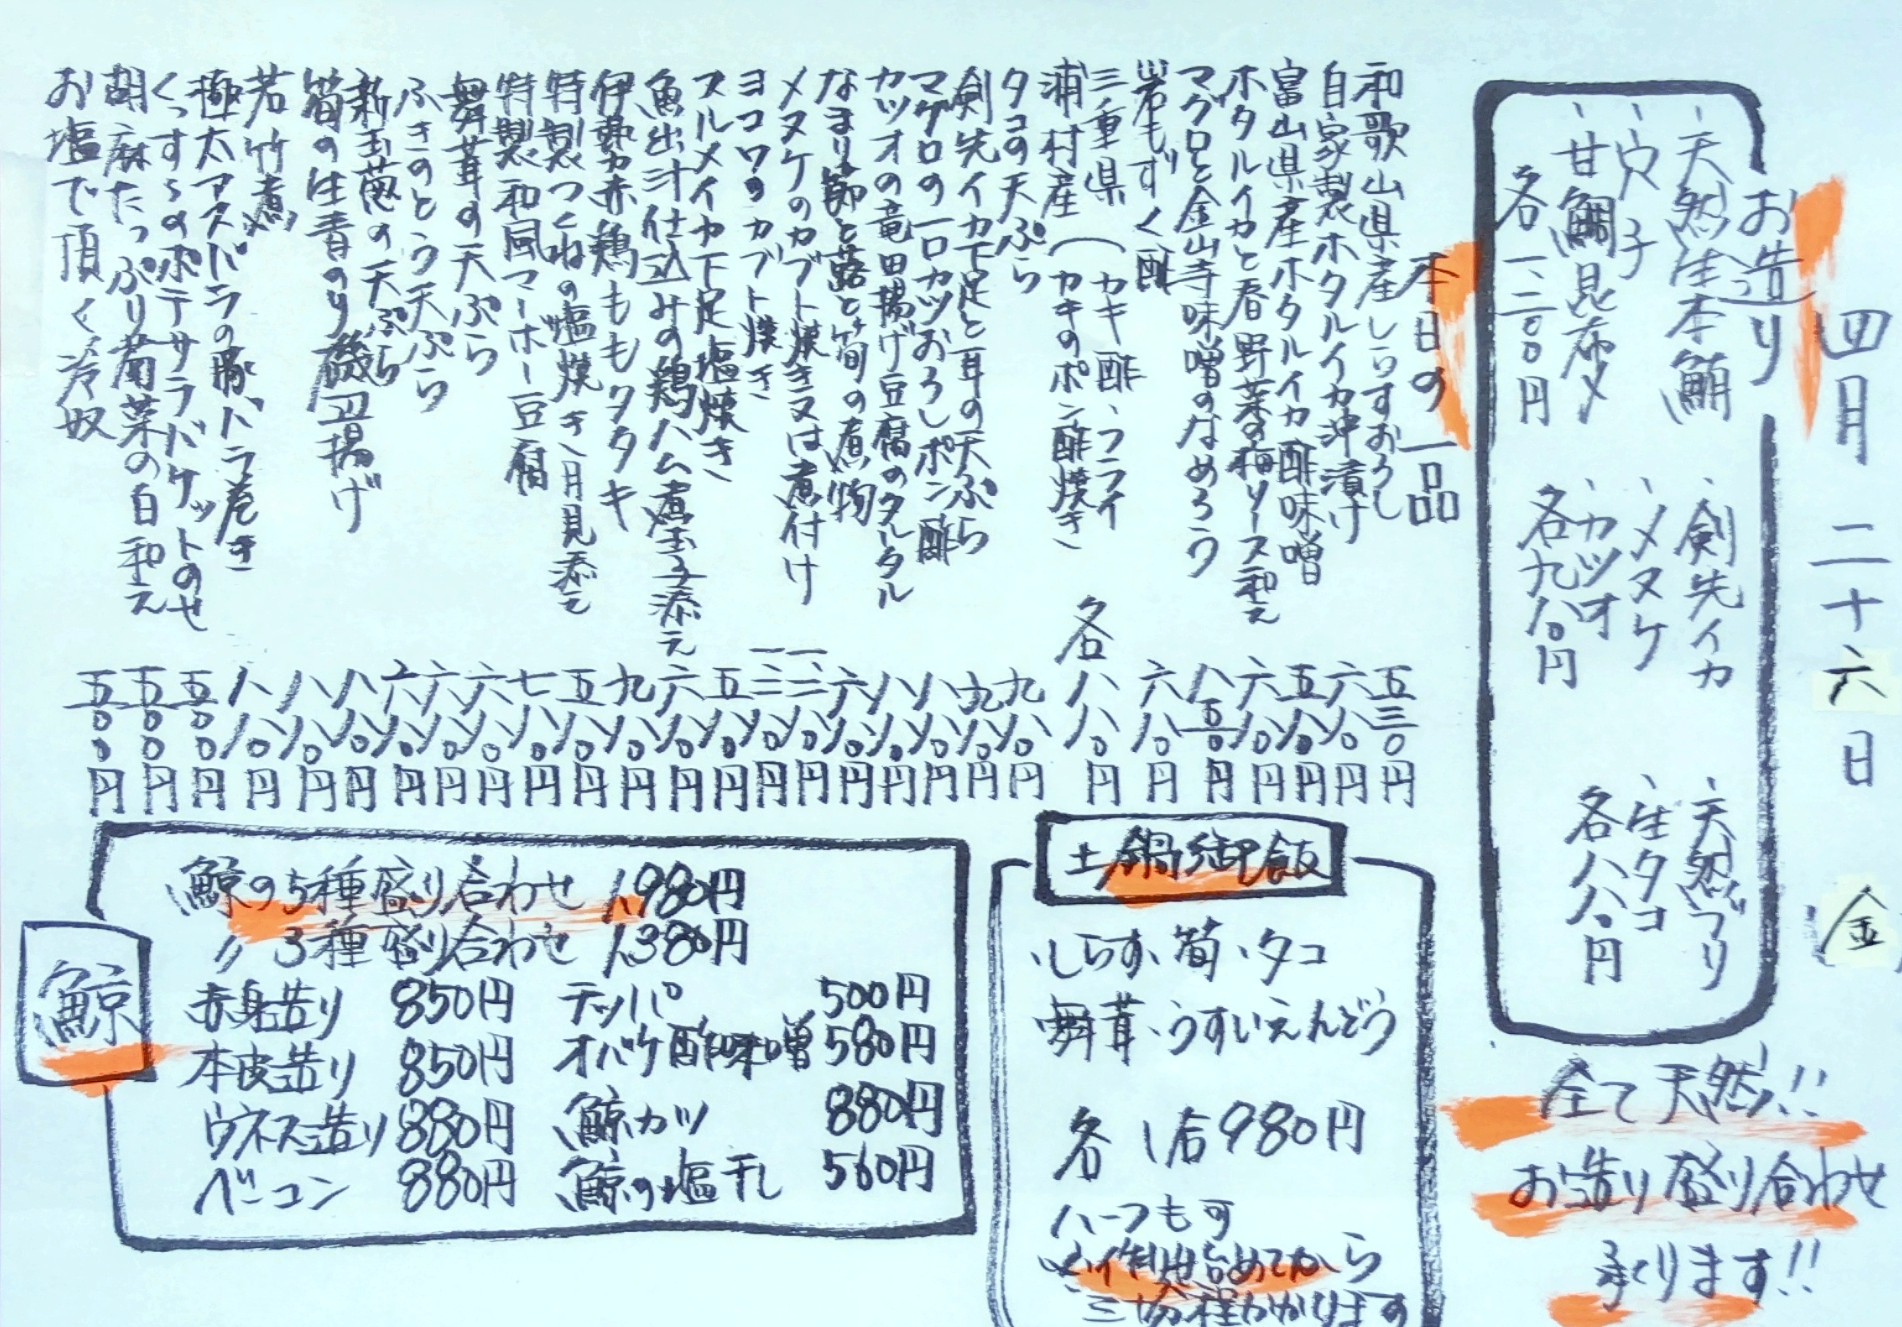 四月二十六日 金
お造り
、天然生本鮪
、穴子
、甘鯛昆布〆
各一、二〇〇円
、剣先イカ
、メヌケ
、カツオ
各九八〇円
、天然ブリ
、生タコ
各八八〇円
全て天然!!
お造り盛り合わせ
承ります!!
本日の一品
和歌山県産しらすおろし 五三〇円
自家製ホタルイカ沖漬け 六八〇円
富山県産ホタルイカ酢味噌 五八〇円
ホタルイカと春野菜の梅ソース和え 六八〇円
マグロと金山寺味噌のなめろう 八五〇円
岩もずく酢 六八〇円
三重県 浦村産(カキ酢、フライ
カキのポン酢焼き 各八八〇円
タコの天ぷら 九八〇円
剣先イカ下足と耳の天ぷら 九八〇円
マグロの一口カツおろしポン酢 八八〇円
カツオの竜田揚げ豆腐のタルタル 八八〇円
なまり節と蕗と筍の煮物 六八〇円
メヌケのカブト焼き又は煮付け 一、二八〇円
ヨコワのカブト焼き 一、三八〇円
スルメイカ下足塩焼き 五八〇円
魚出汁仕込みの鶏ハム煮玉子添え 六八〇円
伊勢赤鶏ももタタキ 九八〇円
特製つくねの塩焼き、月見添え 五八〇円
特製和風マーボー豆腐 七八〇円
舞茸の天ぷら 六八〇円
ふきのとう天ぷら 六八〇円
新玉葱の天ぷら 六八〇円
筍の生青のり磯辺揚げ 八八〇円
若竹煮 八八〇円
極太アスパラの豚バラ巻き 八八〇円
くっすぅのポテサラバケットのせ 五〇〇円
胡麻たっぷり菊菜の白和え 五〇〇円
お塩で頂く冷奴 五〇〇円
土鍋御飯
・しらす、筍・タコ
・舞茸・うすいえんどう
各1合980円
ハーフも可
作り始めてから
三〇分程かかります
鯨
鯨の5種盛り合わせ 1,980円
〃 3種盛り合わせ 1,380円
赤身造り 850円
本皮造り 850円
ウネス造り 880円
ベーコン 880円
テッパ 500円
オバケ酢味噌 580円
鯨カツ 880円
鯨の塩干し 560円